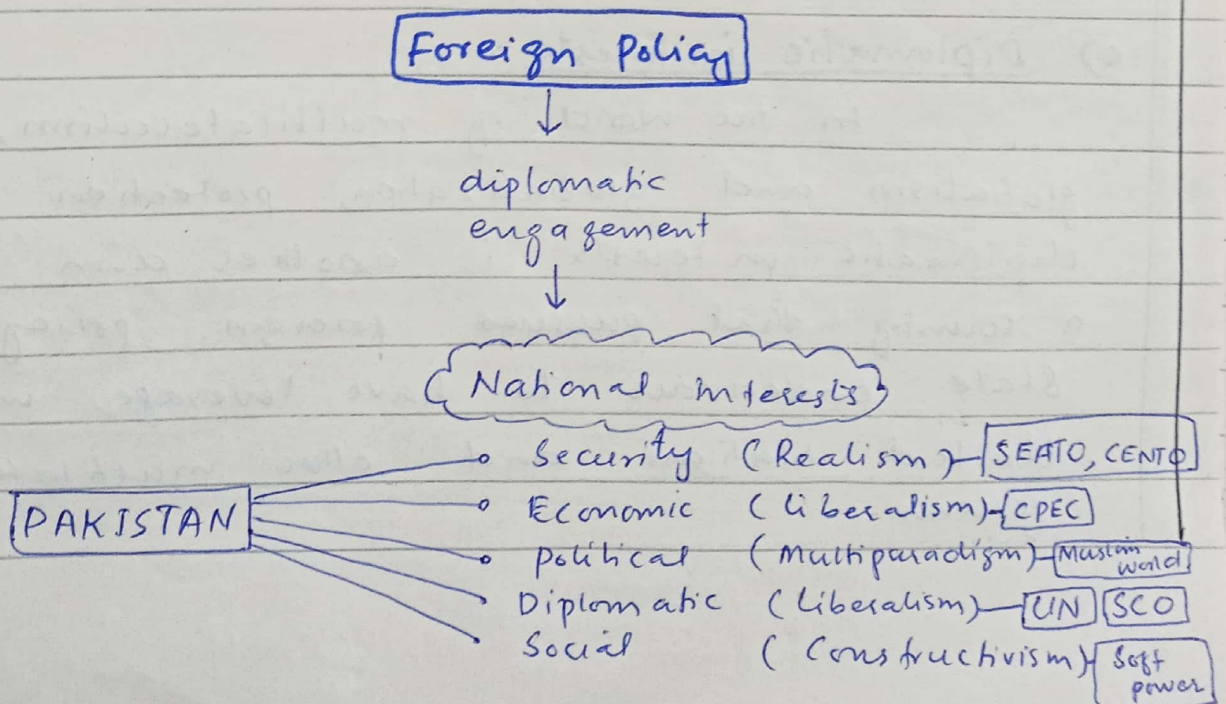 Foreign Policy
diplomatic
engagement
National interests
Security (Realism) SEATO, CENTO
PAKISTAN
Economic (liberalism) CPEC
political (Multiparadigm) Muslim world
Diplomatic (liberalism) UN SCO
Social (Constructivism) Soft power